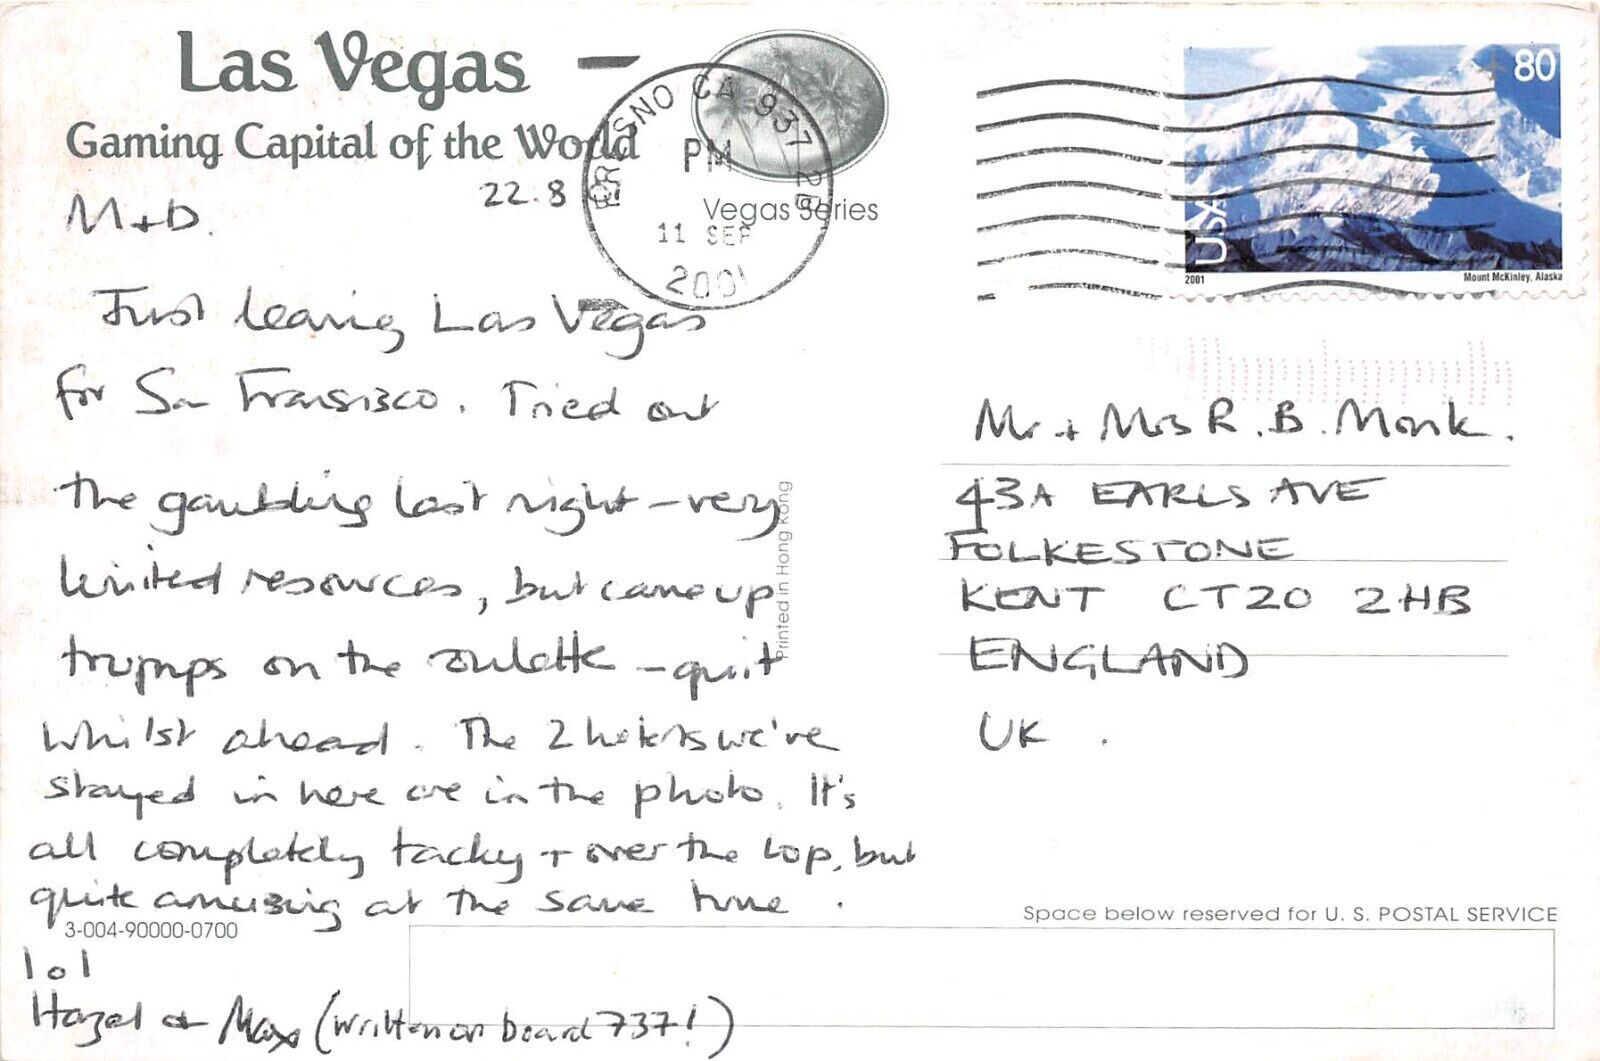 Las Vegas
Gaming Capital of the World
Vegas Series
FRESNO CA 937
PM
11 SEP
2001
80
USA
2001
Mount McKinley, Alaska
22.8
M+D.
Just leaving Las Vegas
for San Fransisco. Tried out
the gambling last night – very
limited resources, but came up
trumps on the roulette – quit
whilst ahead. The 2 hotels we've
stayed in here are in the photo. It's
all completely tacky + over the top, but
quite amusing at the same time.
3-004-90000-0700
lol
Hazel + Max (written on board 737!)
Printed in Hong Kong
Mr + Mrs R. B. Monk.
43A EARLS AVE
FOLKESTONE
KENT CT20 2HB
ENGLAND
UK.
Space below reserved for U. S. POSTAL SERVICE